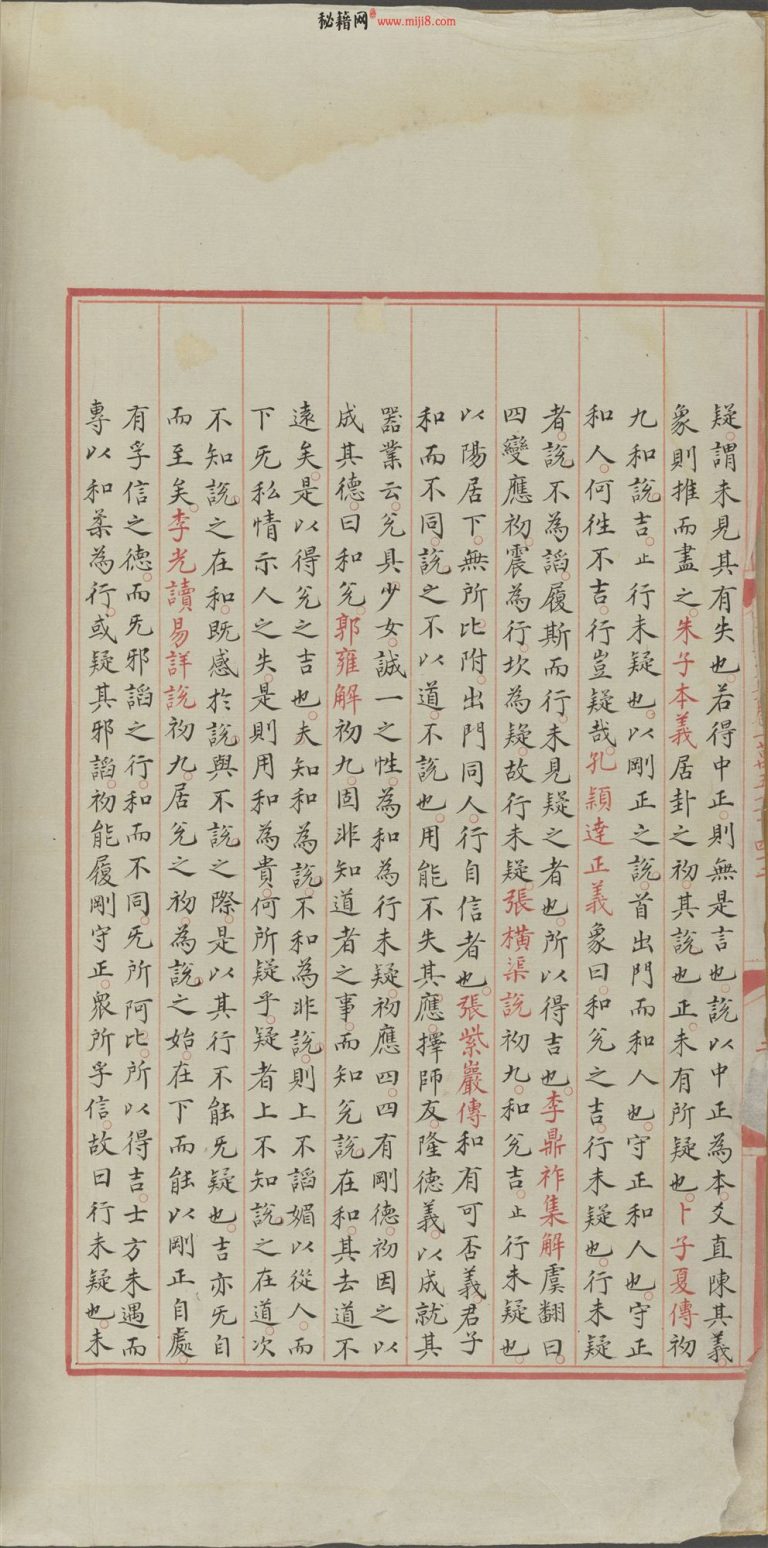 秘籍网 www.miji8.com
疑。謂未見其有失也。若得中正。則無是言也。說以中正為本。爻直陳其義
象則推而盡之。朱子本義居卦之初。其說也正。未有所疑也。卜子夏傳初
九和說吉。止行未疑也。以剛正之說。首出門而和人也。守正和人也。守正
和人。何往不吉。行豈疑哉。孔穎達正義象曰。和兌之吉。行未疑也。行未疑
者。說不為諂。履斯而行。未見疑之者也。所以得吉也。李鼎祚集解虞翻曰。
四變應初。震為行。坎為疑。故行未疑。張橫渠說初九。和兌吉。止行未疑也。
以陽居下。無所比附。出門同人。行自信者也。張紫巖傳和有可否義。君子
和而不同。說之不以道。不說也。用能不失其應。擇師友。隆德義。以成就其
器業云。兌具少女。誠一之性。為和為行未疑。初應四。四有剛德。初因之以
成其德。曰和兌。郭雍解初九。固非知道者之事。而知兌說在和。其去道不
遠矣。是以得兌之吉也。夫知和為說。不和為非說。則上不諂媚以從人。而
下旡私情示人之失。是則用和為貴。何所疑乎。疑者上不知說之在道。次
不知說之在和。既感於說與不說之際。是以其行不能旡疑也。吉亦旡自
而至矣。李光讀易詳說初九。居兌之初。為說之始。在下而能以剛正自處。
有孚信之德。而旡邪諂之行。和而不同。旡所阿比。所以得吉。士方未遇而
專以和柔為行。或疑其邪諂。初能履剛守正。眾所孚信。故曰行未疑也。未